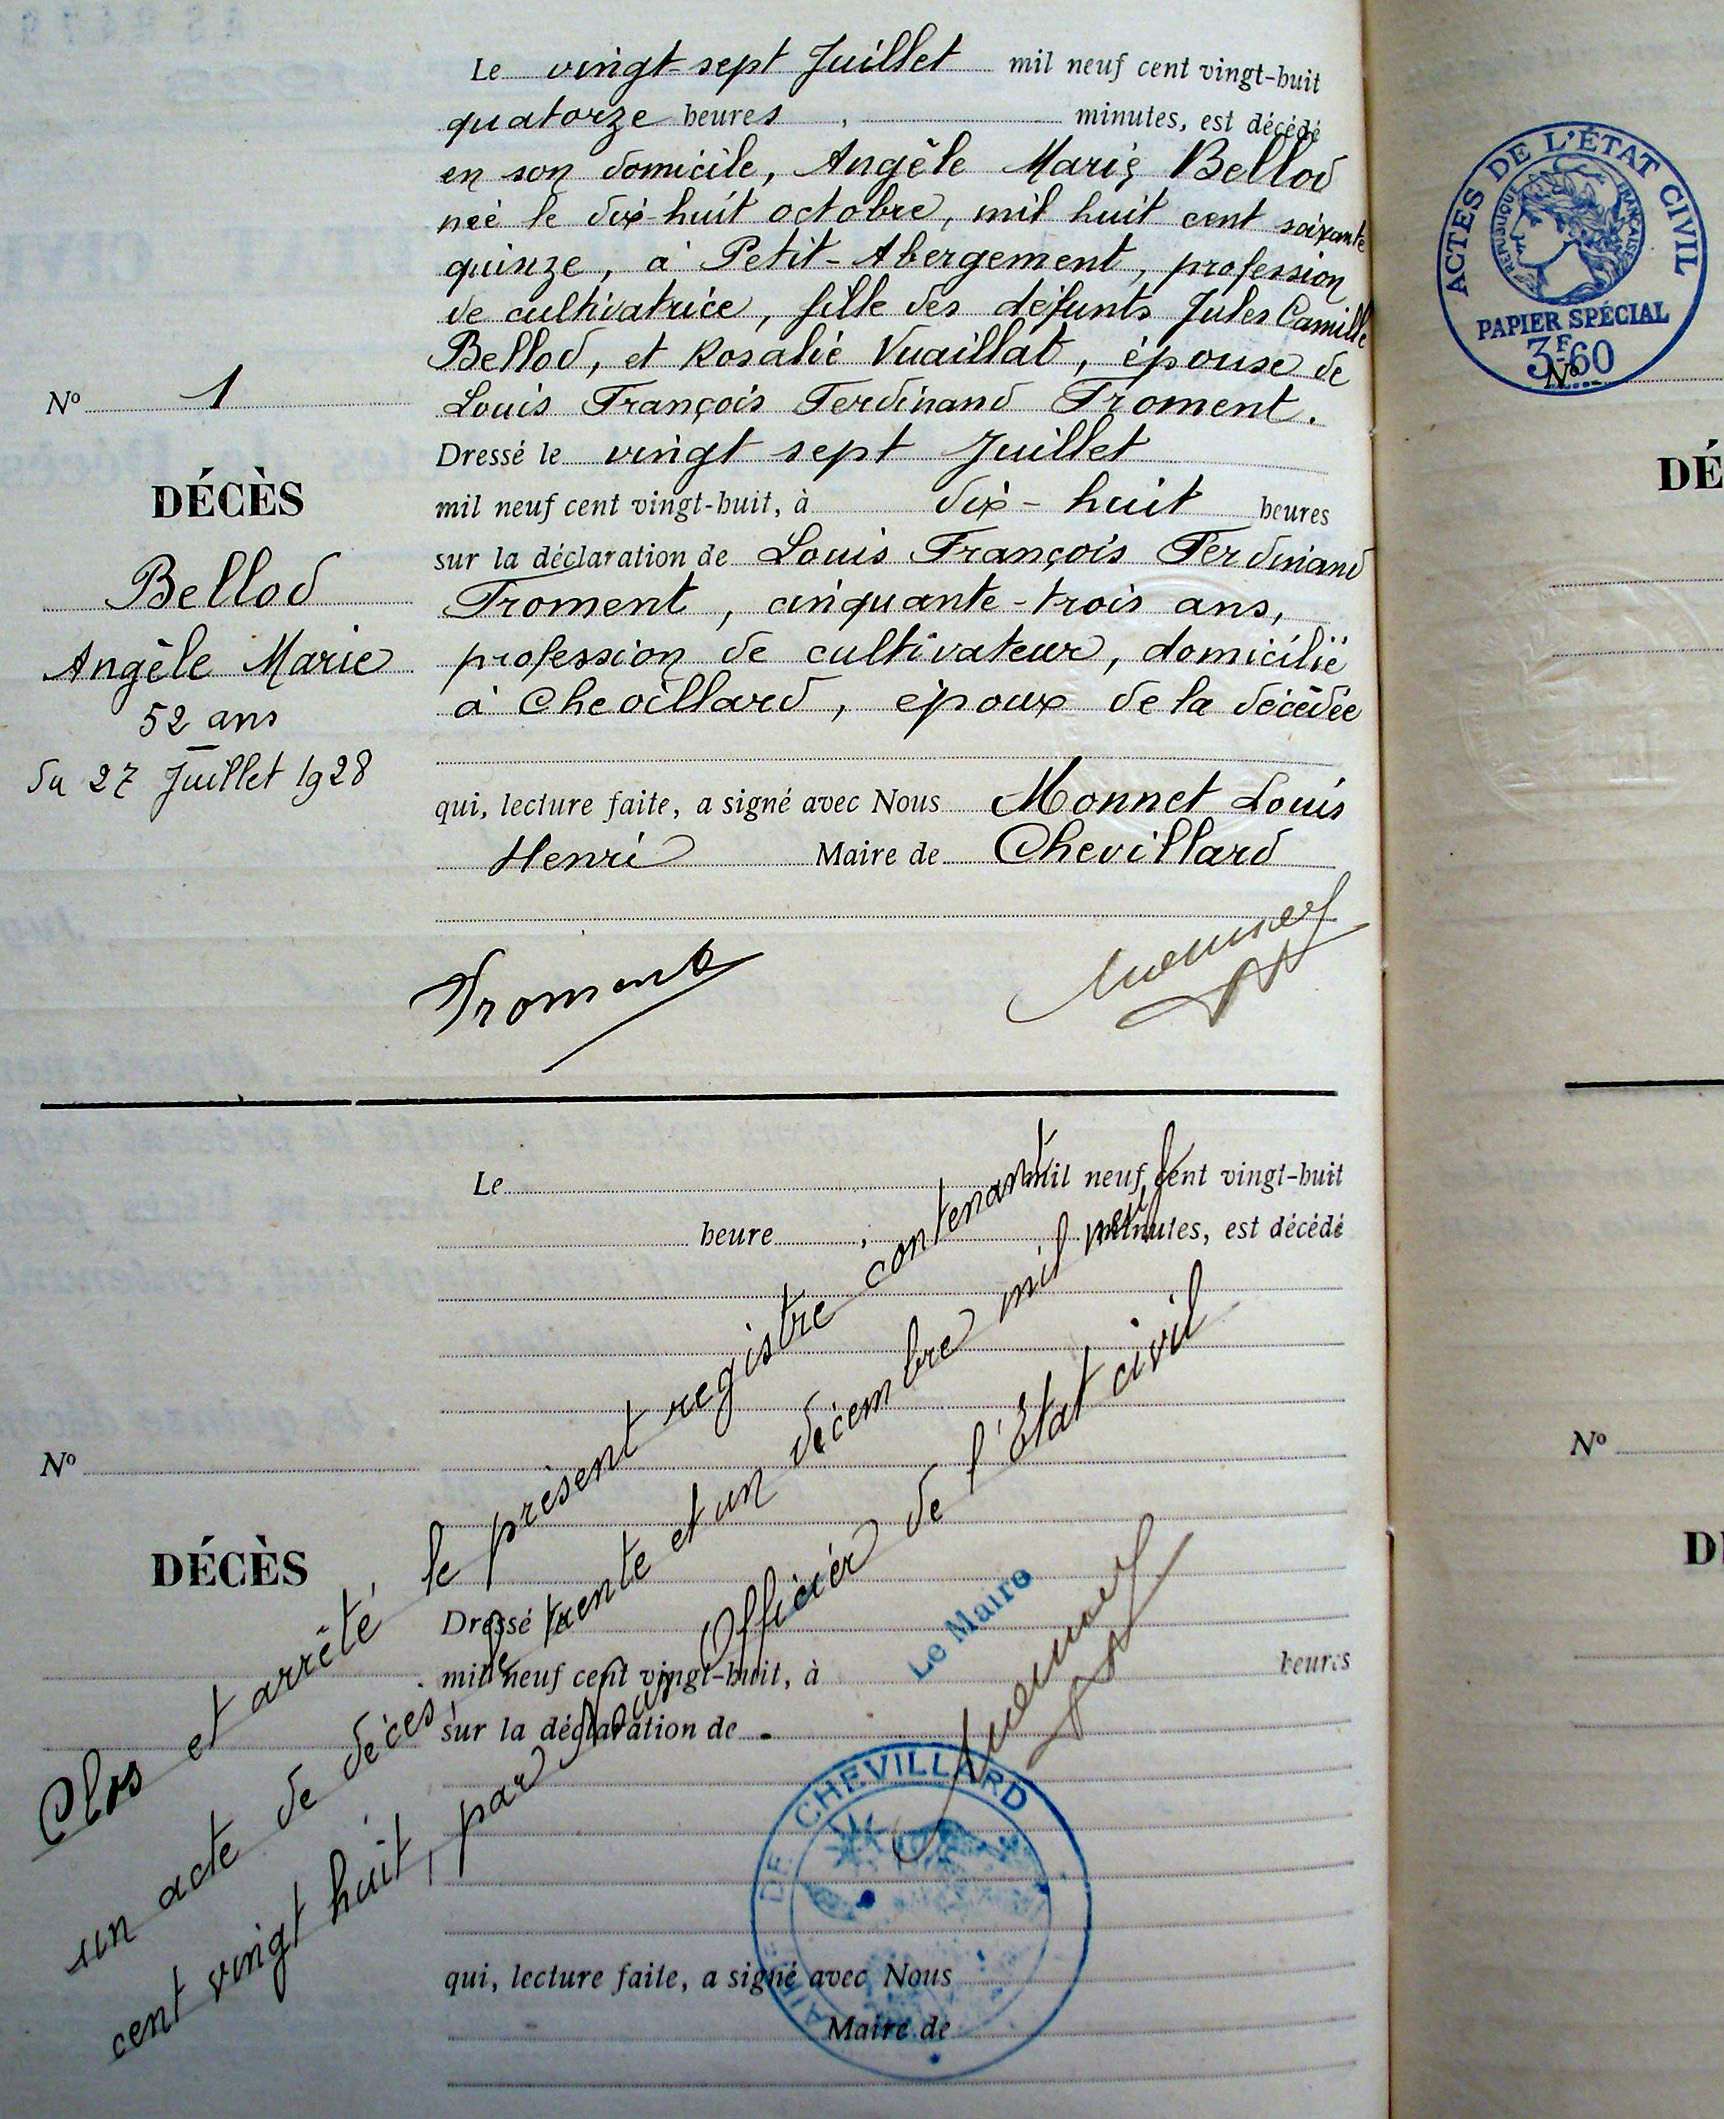 Le vingt-sept Juillet mil neuf cent vingt-huit
quatorze heures , minutes, est décédé
en son domicile, Angèle Marie Bellod
née le dix-huit octobre, mil huit cent soixante
quinze, à Petit-Abergement, profession
de cultivatrice, fille des défunts Jules Camille
Bellod, et Rosalie Vuaillat, épouse de
Louis François Ferdinand Froment.
Dressé le vingt sept Juillet
mil neuf cent vingt-huit, à dix-huit heures
sur la déclaration de Louis François Ferdinand
Froment, cinquante-trois ans,
profession de cultivateur, domicilié
à Chevillard, époux de la décédée
qui, lecture faite, a signé avec Nous Monnet Louis
Henri Maire de Chevillard
Froment
Monnet
No 1
DÉCÈS
Bellod
Angèle Marie
52 ans
du 27 Juillet 1928
ACTES DE L'ÉTAT CIVIL
RÉPUBLIQUE FRANÇAISE
PAPIER SPÉCIAL
3F60
No
DÉ
Le mil neuf cent vingt-huit
heure , minutes, est décédé
Dressé le
mil neuf cent vingt-huit, à heures
sur la déclaration de
qui, lecture faite, a signé avec Nous
Maire de
No
DÉCÈS
Clos et arrêté le présent registre contenant
un acte de décès, le trente et un décembre mil neuf
cent vingt huit, par Nous Officier de l'Etat civil
Le Maire
Monnet
MAIRIE DE CHEVILLARD
No
D